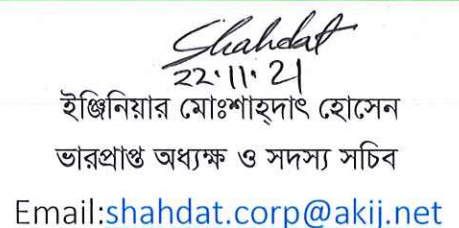 Shahdat
22.11.21
ইঞ্জিনিয়ার মোঃশাহ্দাৎ হোসেন
ভারপ্রাপ্ত অধ্যক্ষ ও সদস্য সচিব
Email:shahdat.corp@akij.net